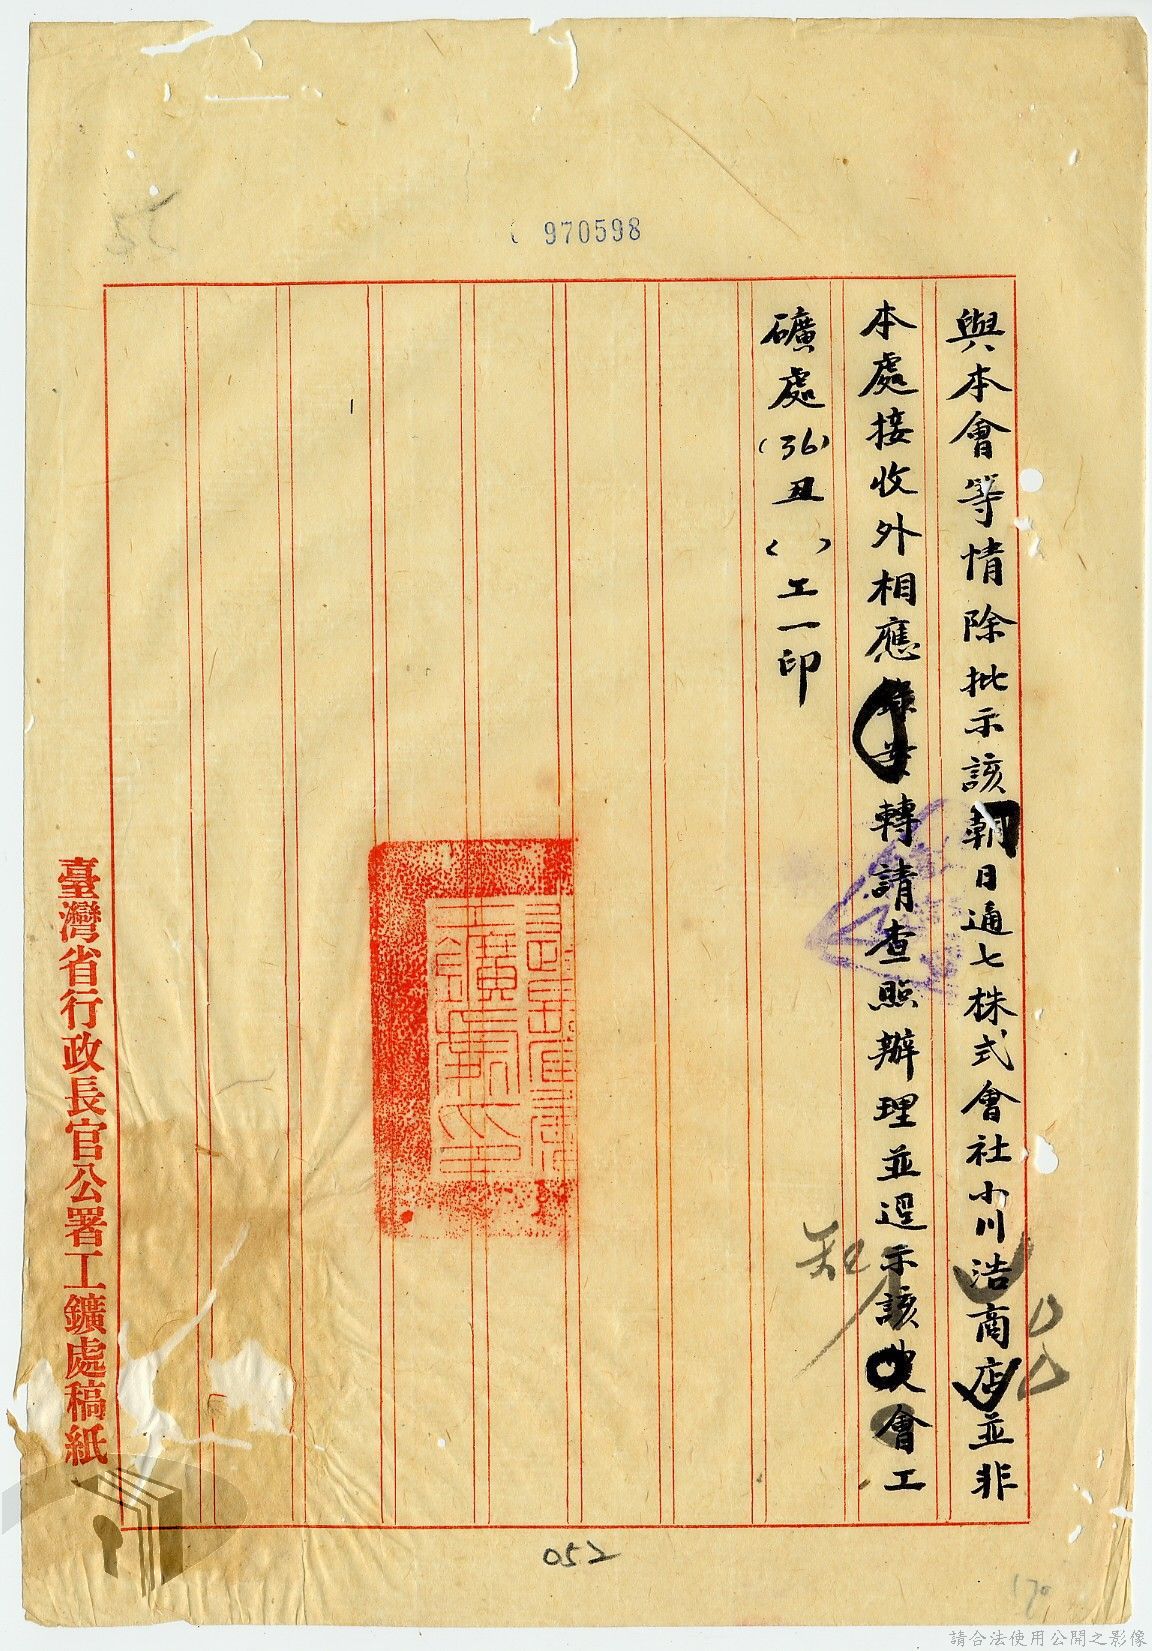 970598
與本會等情除批示該朝日通七株式會社小川浩商店並非
本處接收外相應轉請查照辦理並逕示該會工
礦處(36)丑( )工一印
臺灣省行政長官公署工鑛處稿紙
052
170
請合法使用公開之影像